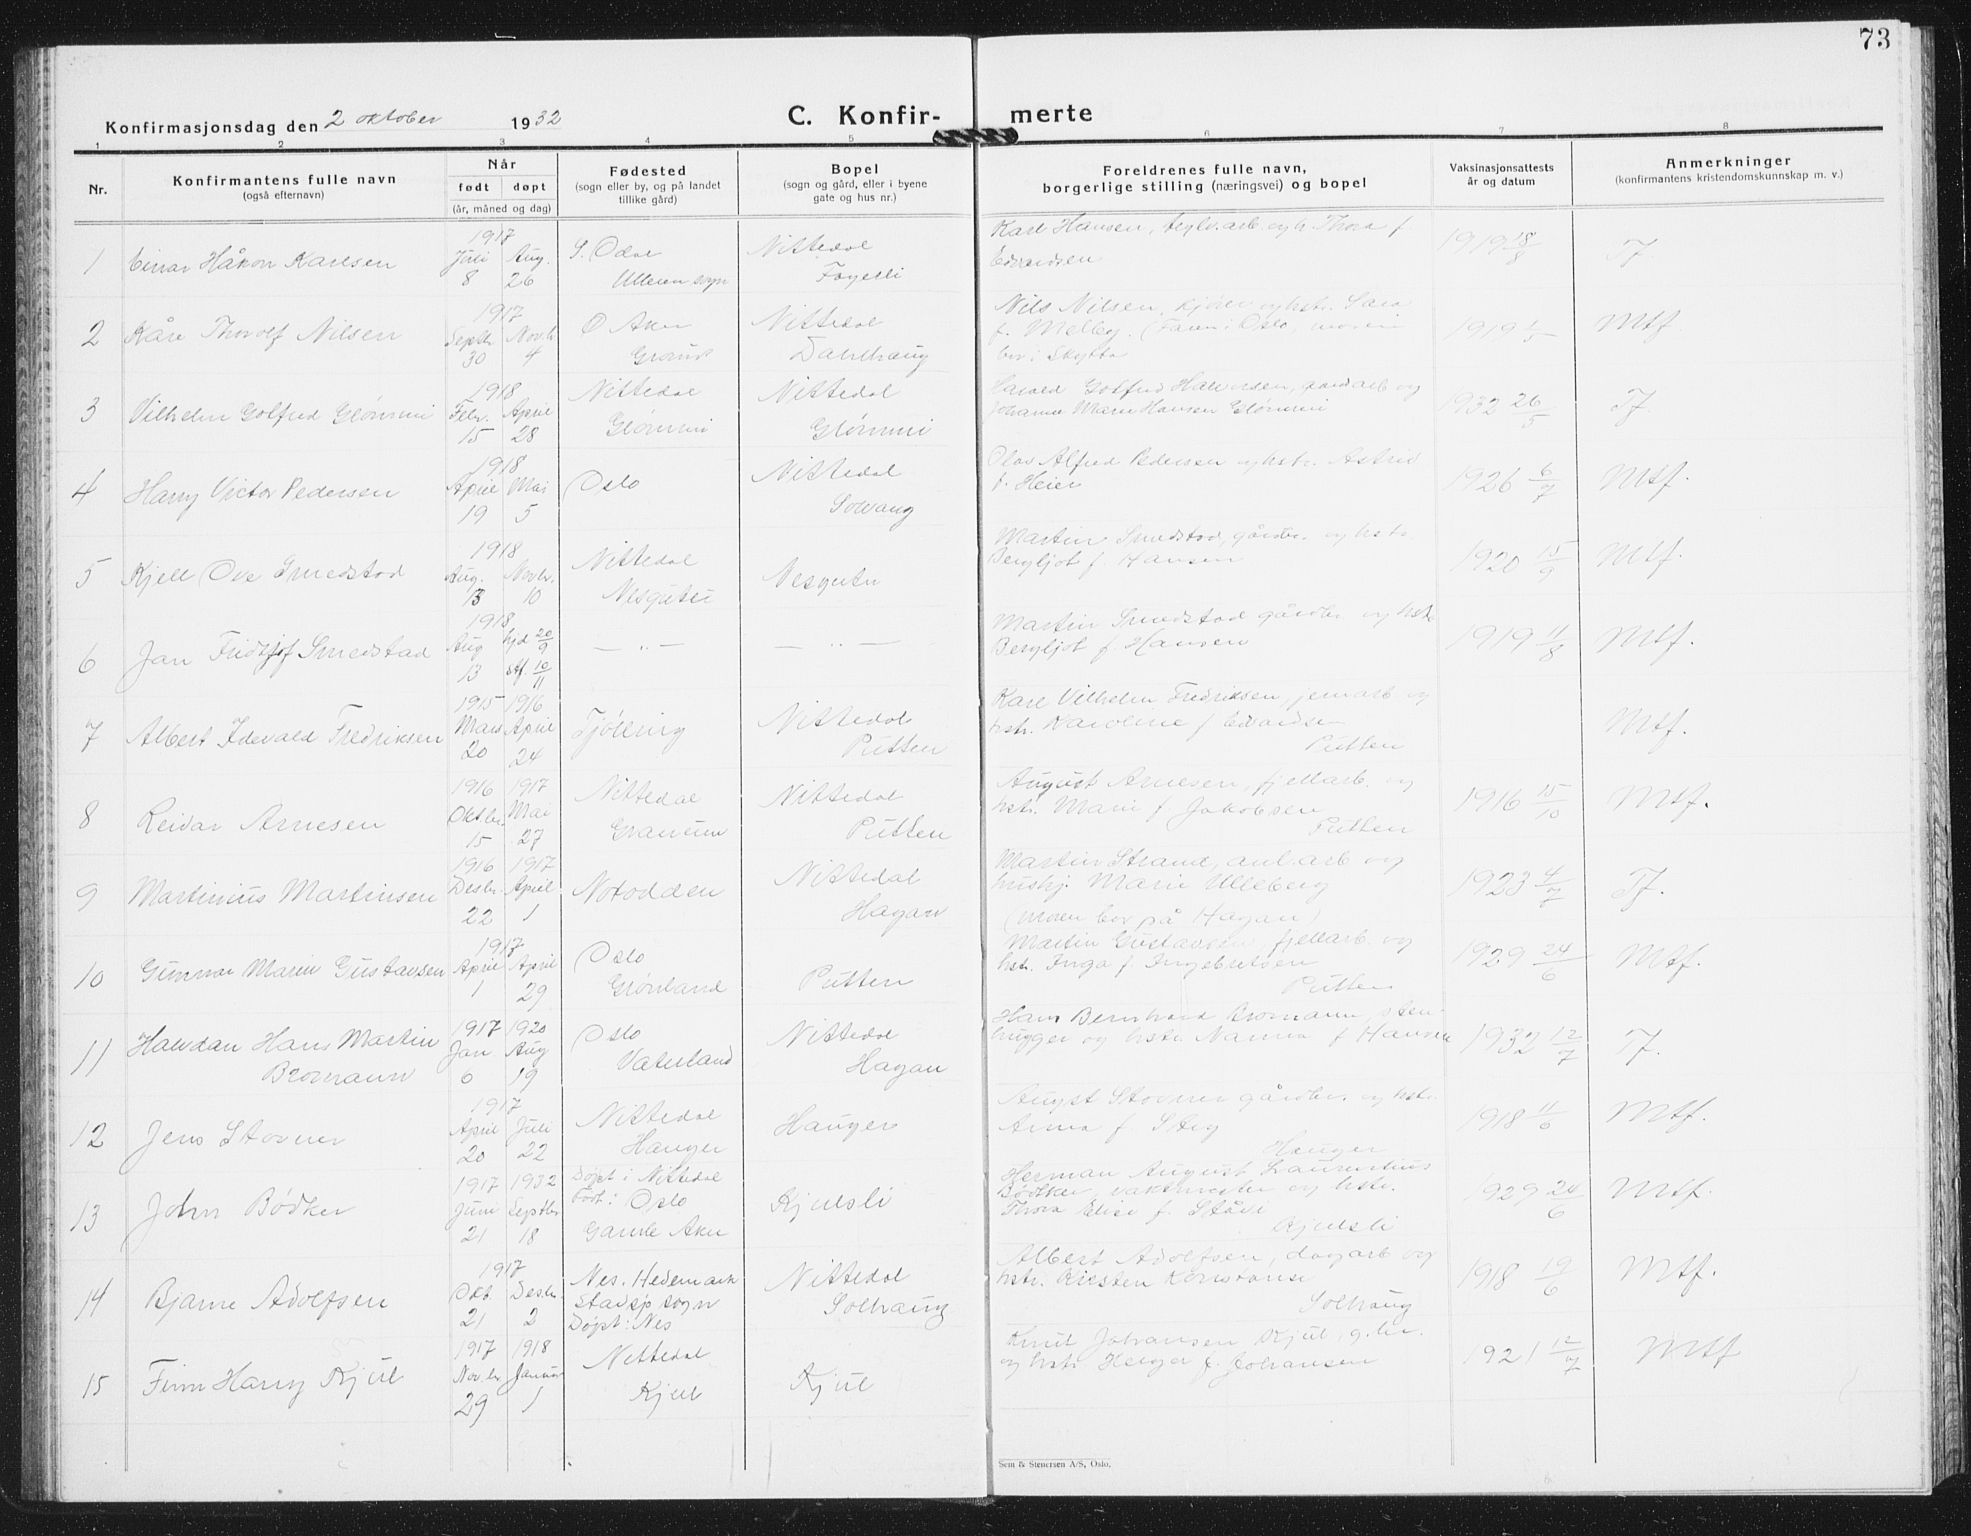 73
Konfirmasjonsdag den 2 oktober 1932
C. Konfir- merte
1 2 3 4 5 6 7 8
Nr.
Konfirmantens fulle navn
(også efternavn)
Når
født døpt
(år, måned og dag)
Fødested
(sogn eller by, og på landet
tillike gård)
Bopel
(sogn og gård, eller i byene
gate og hus nr.)
Foreldrenes fulle navn,
borgerlige stilling (næringsvei) og bopel
Vaksinasjonsattests
år og datum
Anmerkninger
(konfirmantens kristendomskunnskap m. v.)
1 Einar Håkon Karlsen
1917
Juli 8 Aug. 26
S. Odal
Ullern sogn
Nittedal
Fagerli
Karl Hansen, teglv.arb. og h. Thora f.
Edvardsen
1919 18/8
Tf.
2 Kåre Thorolf Nilsen
1917
Septbr. 30 Novbr. 4
Ø Aker
Grorud
Nittedal
Dahlhaug
Nils Nilsen, kjører og hstr. Sara
f. Melby. (Faren i Oslo, moren
bor i Skytta
1919
Mtf.
3 Vilhelm Golfred Glømmi
1918
Febr. 15 April 28
Nittedal
Glømmi
Nittedal
Glømmi
Harald Golfred Halvorsen, gårdarb og
Johanna Marie Hansen Glømmi
1932 26/5
Tf.
4 Harry Victor Pedersen
1918
April 19 Mai 5
Oslo
Nittedal
Solvang
Olav Alfred Pedersen og hstr. Astrid
f. Heier
1926 6/7
Mtf.
5 Kjell Ove Smedstad
1918
Aug. 13 Novbr. 10
Nittedal
Nesgutu
Nesgutu
Martin Smedstad, gårdbr. og hstr.
Bergljot f. Hansen
1920 15/9
Mtf.
6 Jan Fridtjof Smedstad
1918
Aug 13 hjd 20/9 stf. 10/11
— „ —
— „ —
Martin Smedstad gårdbr og hstr
Bergljot f. Hansen
1919 11/8
Mtf.
7 Albert Idevald Fredriksen
1915 1916
Mars 20 April 24
Tjølling
Nittedal
Putten
Karl Vilhelm Fredriksen, jernarb og
hstr. Karoline f Edvardsen
Putten
Mtf.
8 Reidar Arnesen
1916 1917
Oktbr. 15 Mai 27
Nittedal
Granum
Nittedal
Putten
August Arnesen, fjellarb. og
hstr. Marie f Jakobsen
Putten
1916 15/10
Mtf.
9 Martinius Martinsen
1916 1917
Desbr. 22 April 1
Notodden
Nittedal
Hagan
Martin Strand, anl.arb og
hushj. Marie Ulleberg
(moren bor på Hagan)
1923 4/7
Tf.
10 Gunnar Marin Gustavsen
1917
April 1 April 29
Oslo
Grønland
Putten
Martin Gustavsen, fjellarb. og
hstr. Inga f. Ingebretsen
Putten
1929 24/6
Mtf.
11 Halvdan Hans Martin
Bromann
1917 1920
Jan 6 Aug 19
Oslo
Vaterland
Nittedal
Hagan
Hans Bernhard Bromann, sten-
hugger og hstr Nanna f Hansen
1932 12/7
Tf.
12 Jens Stovner
1917
April 20 Juli 22
Nittedal
Hauger
Hauger
August Stovner gårdbr. og hstr.
Anna f. Steg
Hauger
1918 11/6
Mtf.
13 John Bødker
1917 1932
Juni 21 Septbr 18
Døpt i Nittedal
Født: Oslo
Gamle Aker
Kjulsli
Herman August Laurentius
Bødker, vaktmester og hstr.
Thora Elise f.
Kjulsli
1929 24/6
Mtf.
14 Bjarne Adolfsen
1917
Okt. 21 Desbr. 2
Nes. Hedemark
sogn
Døpt: Nes
Nittedal
Solhaug
Albert Adolfsen, dagarb og
hstr. Kirsten Konstanse
Solhaug
1918 19/6
Mtf.
15 Finn Harry Kjul
1917 1918
Novbr. 29 Januar 1
Nittedal
Kjul
Kjul
Knut Johansen Kjul, g.br.
og hstr Helga f. Johansen
1921 12/7
Mtf
Sem & Stenersen A/S, Oslo.